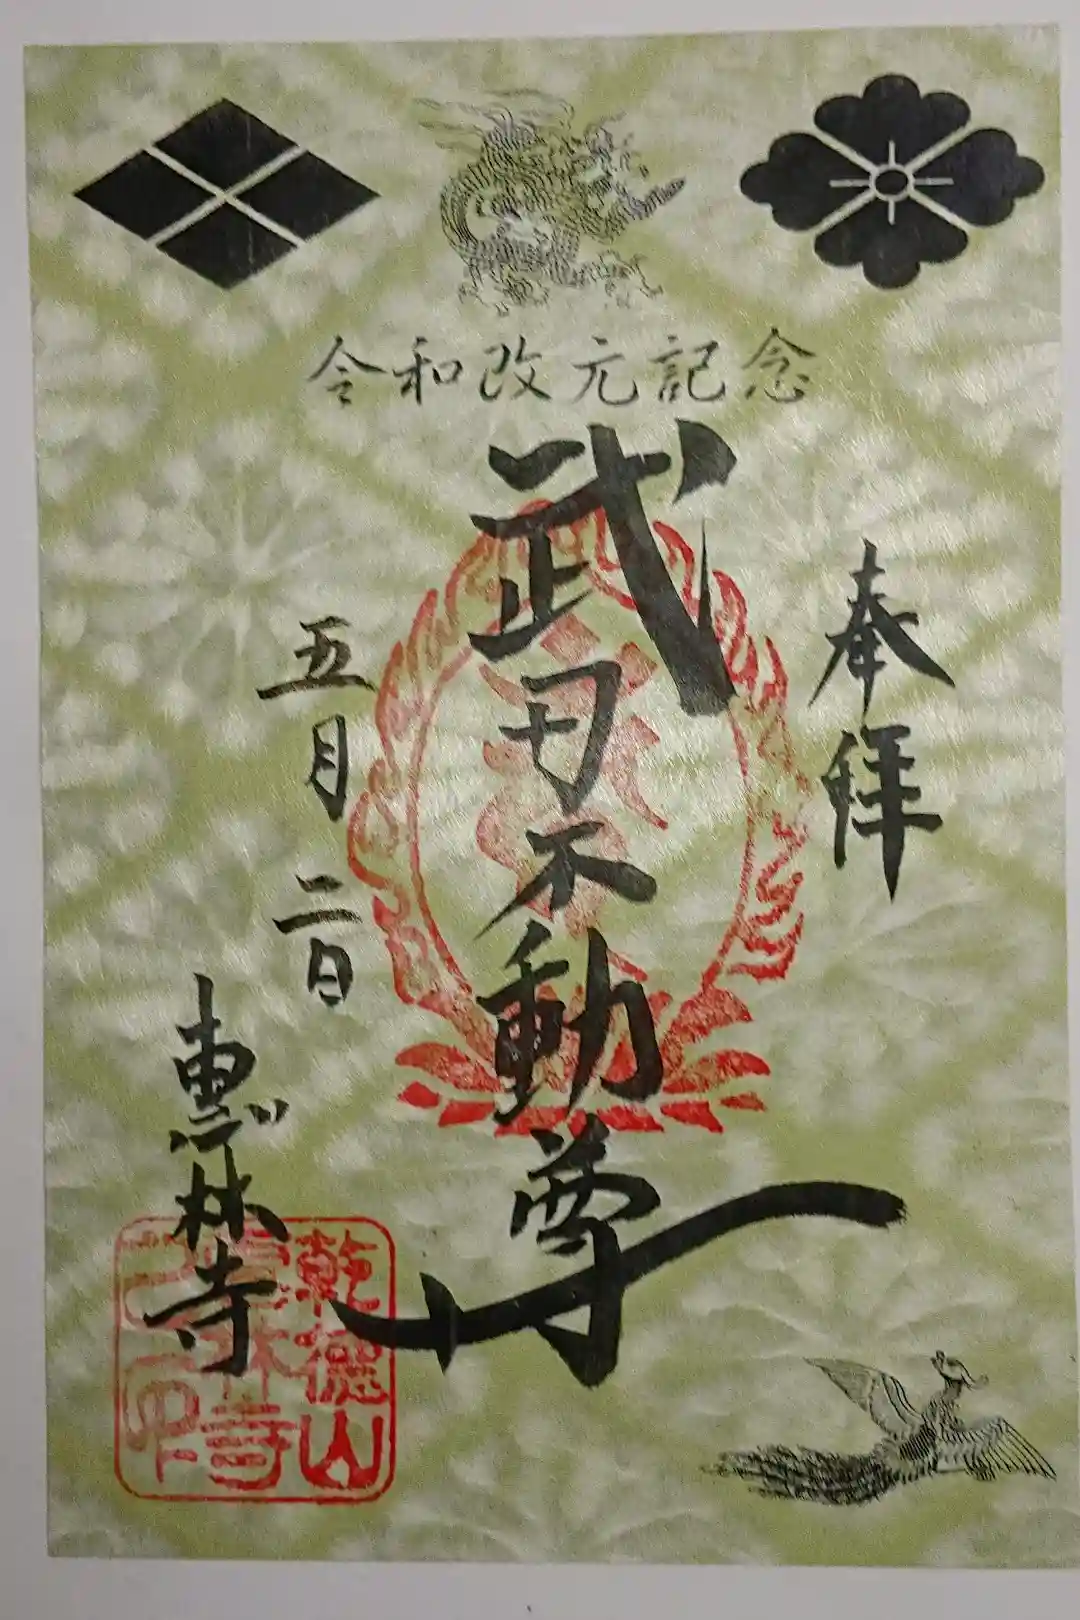 令和改元記念
奉拝
武田不動尊
五月二日
惠林寺
乾徳山
恵林寺